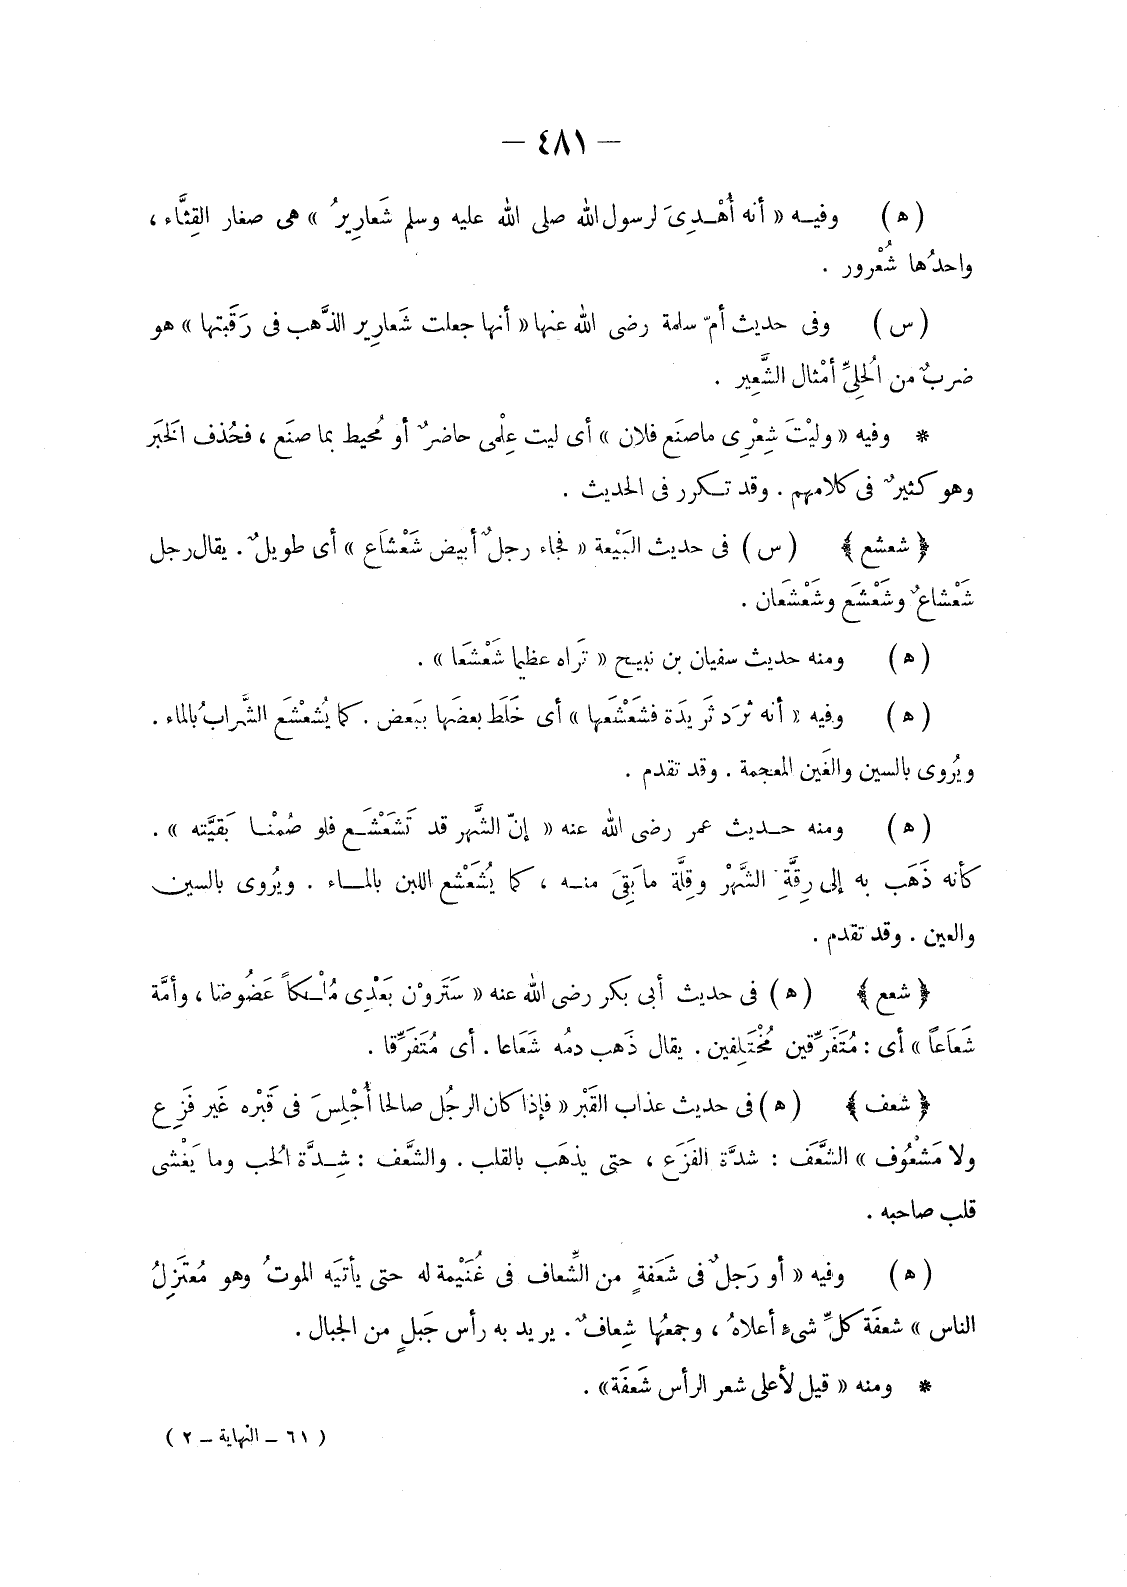 — ٤٨١ —
( ه ) وفيه « أنه أُهْدِىَ لرسول الله صلى الله عليه وسلم شَعارِيرُ » هى صغار القِثَّاء ،
واحدُها شُعْرور .
( س ) وفى حديث أمّ سلمة رضى الله عنها « أنها جعلت شَعارِير الذَّهب فى رَقَبتها » هو
ضربٌ من الُحلِىِّ أمْثال الشَّعِير .
* وفيه « وليْتَ شِعْرِى ماصنَع فلان » أى ليت عِلْمِى حاضرٌ أو مُحيط بما صنَع ، فحُذف الَخبَر
وهو كثيرٌ فى كلامهم . وقد تكرر فى الحديث .
﴿ شعشع ﴾ ( س ) فى حديث البَيْعة « فجاء رجلٌ أبيض شَعْشاَع » أى طويلٌ . يقال رجل
شَعْشاعٌ وشَعْشَع وشَعْشَعان .
( ه ) ومنه حديث سفيان بن نبيح « تَراه عظيما شَعْشَعا » .
( ه ) وفيه « أنه ثرَد ثَرِيدَة فشَعْشَعها » أى خَلَط بعضَها ببَعض . كما يُشعْشَع الشَّرابُ بالماء .
ويُروى بالسين والغَين المعجمة . وقد تقدم .
( ه ) ومنه حديث عمر رضى الله عنه « إنّ الشَّهر قد تَشَعْشَع فلو صُمْنا بَقيَّته » .
كأنه ذَهَب به إلى رِقَّةِ الشَّهْر وقِلَّة مابَقِىَ منه ، كما يُشَعْشع اللبن بالماء . ويُروى بالسين
والعين . وقد تقدم .
﴿ شعع ﴾ ( ه ) فى حديث أبى بكر رضى الله عنه « سَتَروْن بَعْدِى مُلْكاً عَضُوضا ، وأمَّة
شَعَاَعاً » أى : مُتَفَرِّقين مُخْتَلِفين . يقال ذَهب دمُه شَعَاعا . أى مُتَفَرِّقا .
﴿ شعف ﴾ ( ه ) فى حديث عذاب القَبْر « فإذا كان الرجُل صالحا أُجْلِسَ فى قَبْره غَير فَزِع
ولا مَشْعُوف » الشَّعَف : شدَّة الفَزَع ، حتى يذهَب بالقلب . والشَّعف : شِدَّة الُحب وما يَغْشى
قلب صاحبه .
( ه ) وفيه « أو رَجلٌ فى شَعَفةٍ من الشِّعاف فى غُنَيْمة له حتى يأتيَه الموتُ وهو مُعتَزِلُ
الناس » شعفَة كلِّ شىءٍ أعلاهُ ، وجمعُها شِعافٌ . يريد به رأس جَبلٍ من الجبال .
* ومنه « قيل لأعلى شعر الرأس شَعفَة» .
( ٦١ – النهاية – ٢ )